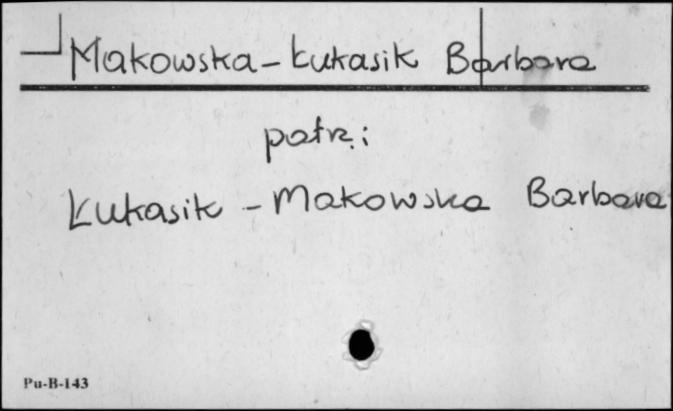 Makowska-Łukasik Barbara
patrz:
Łukasik-Makowska Barbara
Pu-B-143